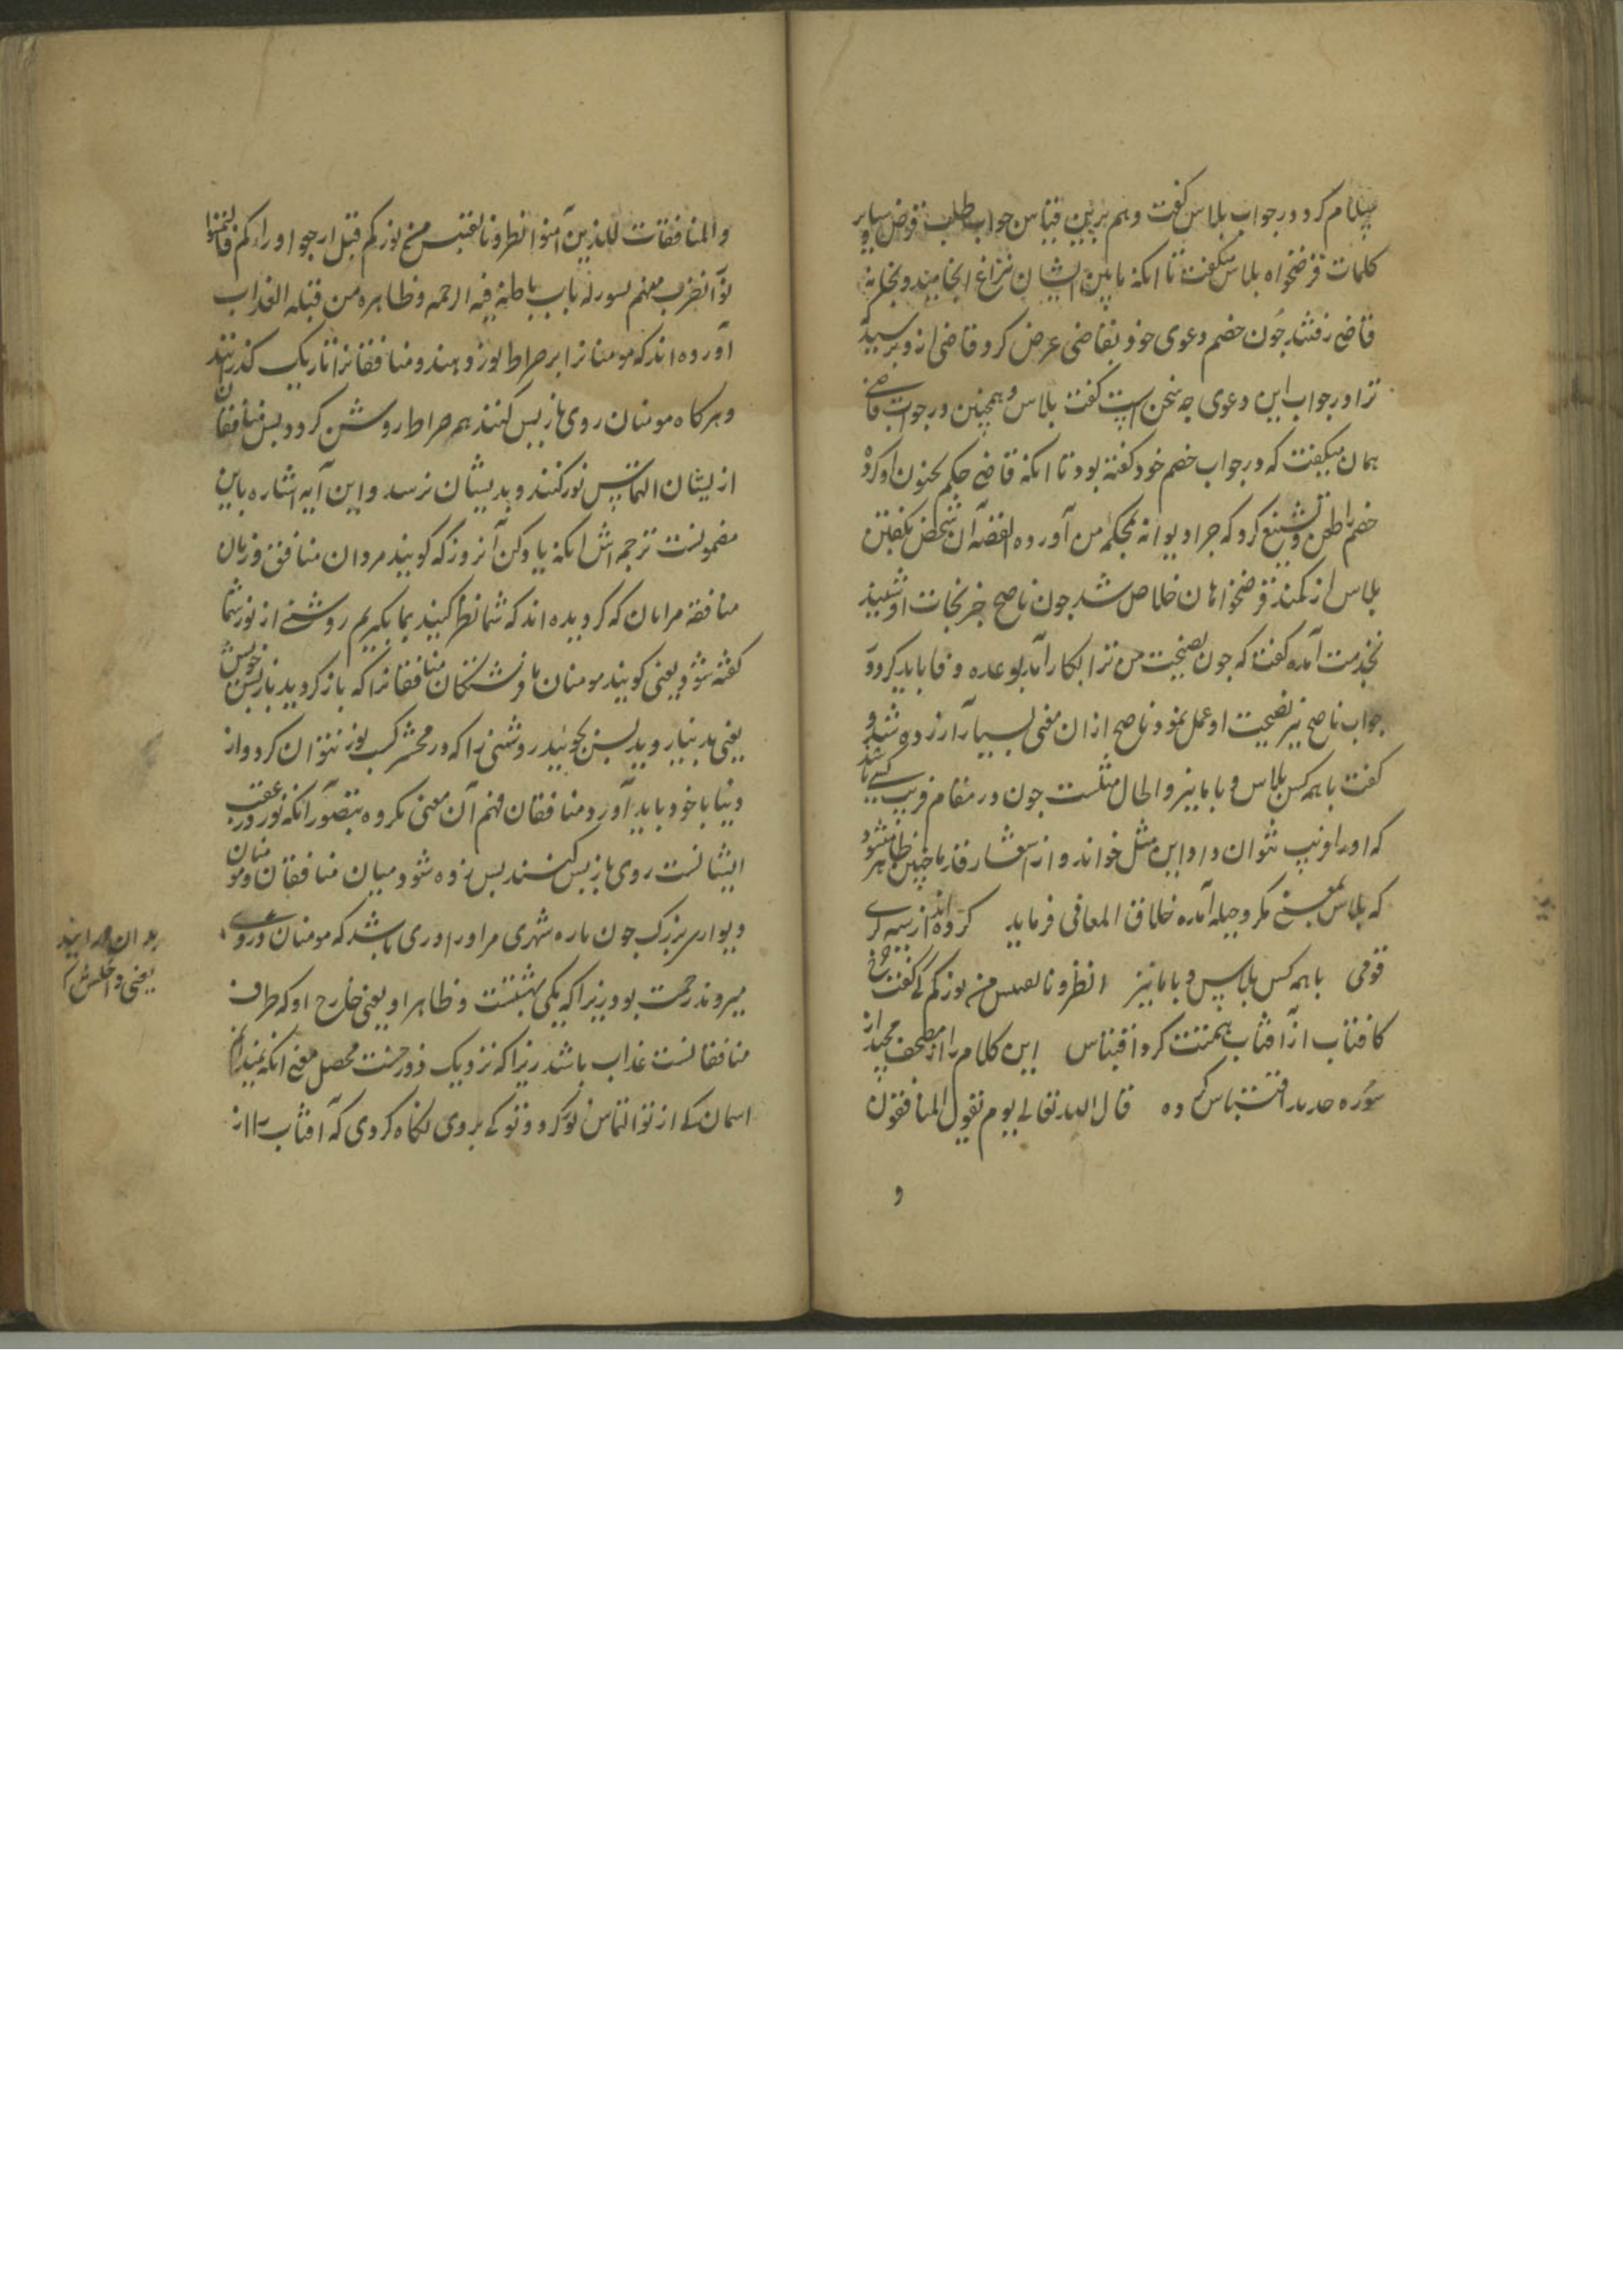 سلام کرد در جواب بلاس گفت و هم برین قیاس جواب طلب قرض و سایر
کلمات قرضخواه بلاس میگفت تا انکه مابین ایشان نزاع انجامید و بخانه
قاضی رفتند چون خصم دعوی خود بقاضی عرض کرد قاضی از و پرسید
ترا در جواب این دعوی چه سخن است گفت بلاس و همچنین در جواب قاضی
همان میگفت که در جواب خصم خود گفته بود تا انکه قاضی حکم بجنون او کرد و
خصم را طعن و تشنیع کرد که چرا دیوانه بمحکمه من آورده القصه آن شخص بگفتن
بلاس از کمند قرضخواهان خلاص شد چون ناصح خبر نجات او شنید
بخدمت آمده گفت که چون نصیحت من ترا بکار آمد بوعده وفا باید کرد و در
جواب ناصح نیز بنصیحت او عمل نمود ناصح ازان معنی بسیار آزرده شد و
گفت با همه کس بلاس و با ما نیز و الحال مثلست چون در مقام فریب کسی باشند
که او را فریب نتوان داد این مثل خوانند و از اشعار قدما چنین ظاهر میشود
که بلاس بمعنی مکر و حیله آمده خلاق المعانی فرماید کرده اند از سیه گری
قومی با همه کس بلاس و با ما نیز انظرونا نقتبس من نورکم کی گفت چرخ
کافتاب از آفتاب همتت کرد اقتباس این کلام را از مصحف مجید از
سوره حدید اقتباس کرده قال الله تعالی یوم تقول المنافقون
و
والمنافقات للذین آمنوا انظرونا نقتبس من نورکم قیل ارجعوا وراءکم فالتمسوا
نورا فضرب بینهم بسور له باب باطنه فیه الرحمه و ظاهره من قبله العذاب
آورده اند که مومنانرا بر صراط نور دهند و منافقانرا تاریک گذارند
و هرکاه مومنان روی بازپس کنند همه صراط روشن کردد پس منافقان
ازیشان التماس نور کنند و بدیشان نرسد و این آیه اشاره باین
مضمونست ترجمه اش انکه یاد کن آنروز که گویند مردان منافق و زنان
منافقه مرانان که گرویده اند که شما نظر کنید بما بگیریم روشنی از نور شما
گفته شود یعنی گویند مومنان یا فرشتگان منافقانرا که باز گردید باز پس خویش
یعنی بدنیا روید پس بجوئید روشنی را که در محشر کسب نور نتوان کرد و از
دنیا با خود باید آورد و منافقان فهم آن معنی نکرده بتصور انکه نور در عقب
ایشانست روی بازپس کنند پس زده شود میان منافقان و مومنان
دیواری بزرگ چون باره شهری مر او را دری باشد که مومنان در وی
میروند رحمت بود زیرا که یکی بهشتست و ظاهر او یعنی خارج او که طرف
منافقانست عذاب باشد زیرا که نزدیک دوزخست محصل معنی انکه
اسمان کی از تو التماس نور کرد و تو کی بروی نگاه کردی که آفتاب را از
بدان در ایند
یعنی داخلش